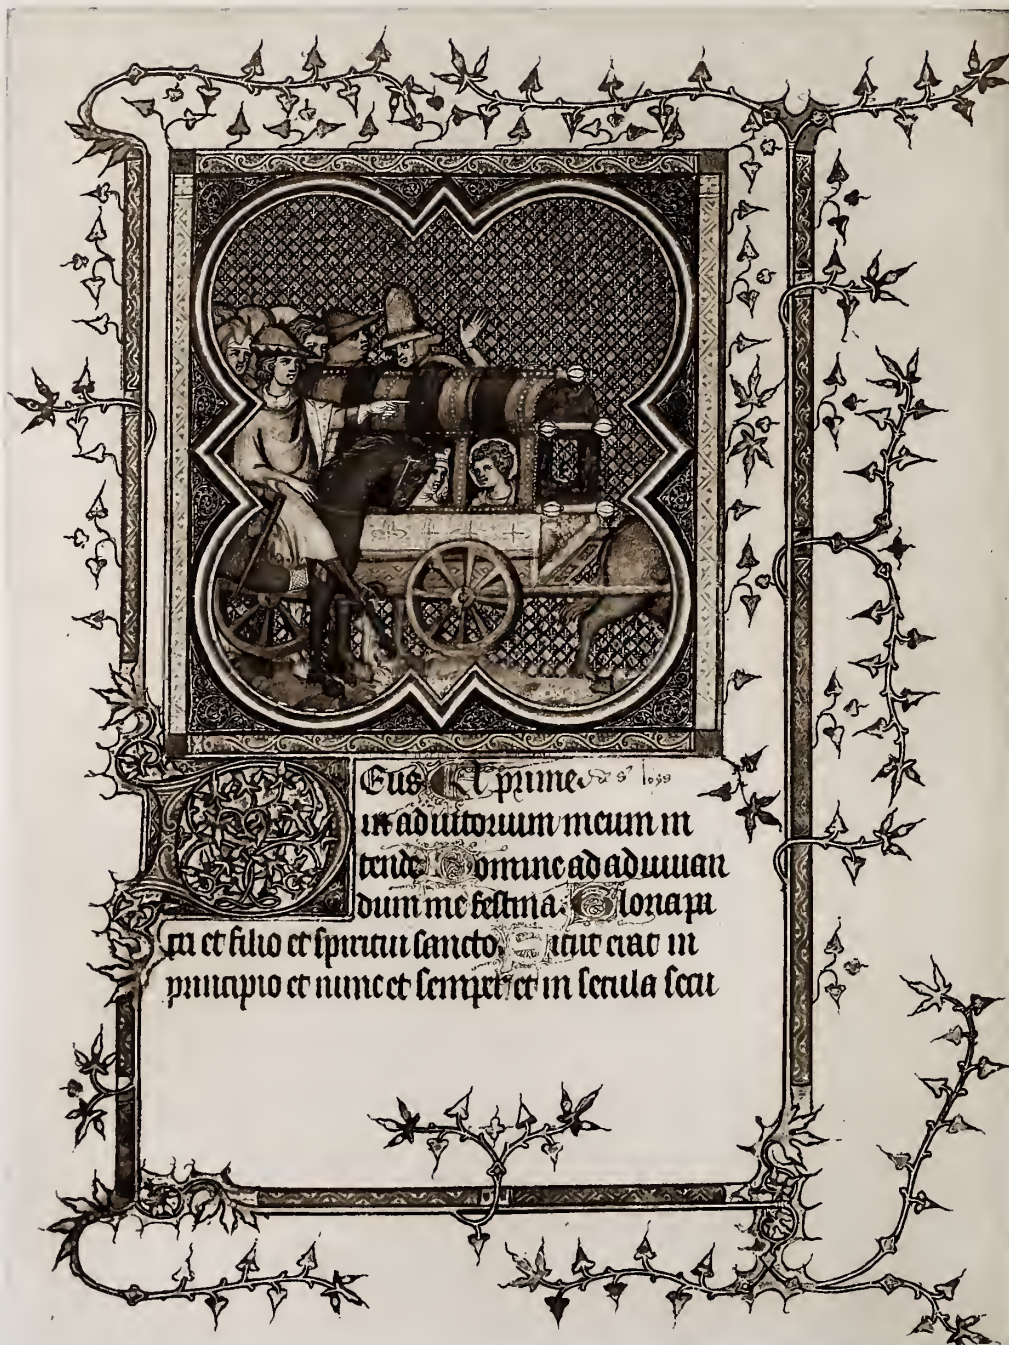 Deus A prime
in adiutorium meum in
tende Domine ad adiuuan
dum me festina. Gloria pa
tri et filio et spiritui sancto. Sicut erat in
principio et nunc et semper et in secula secu